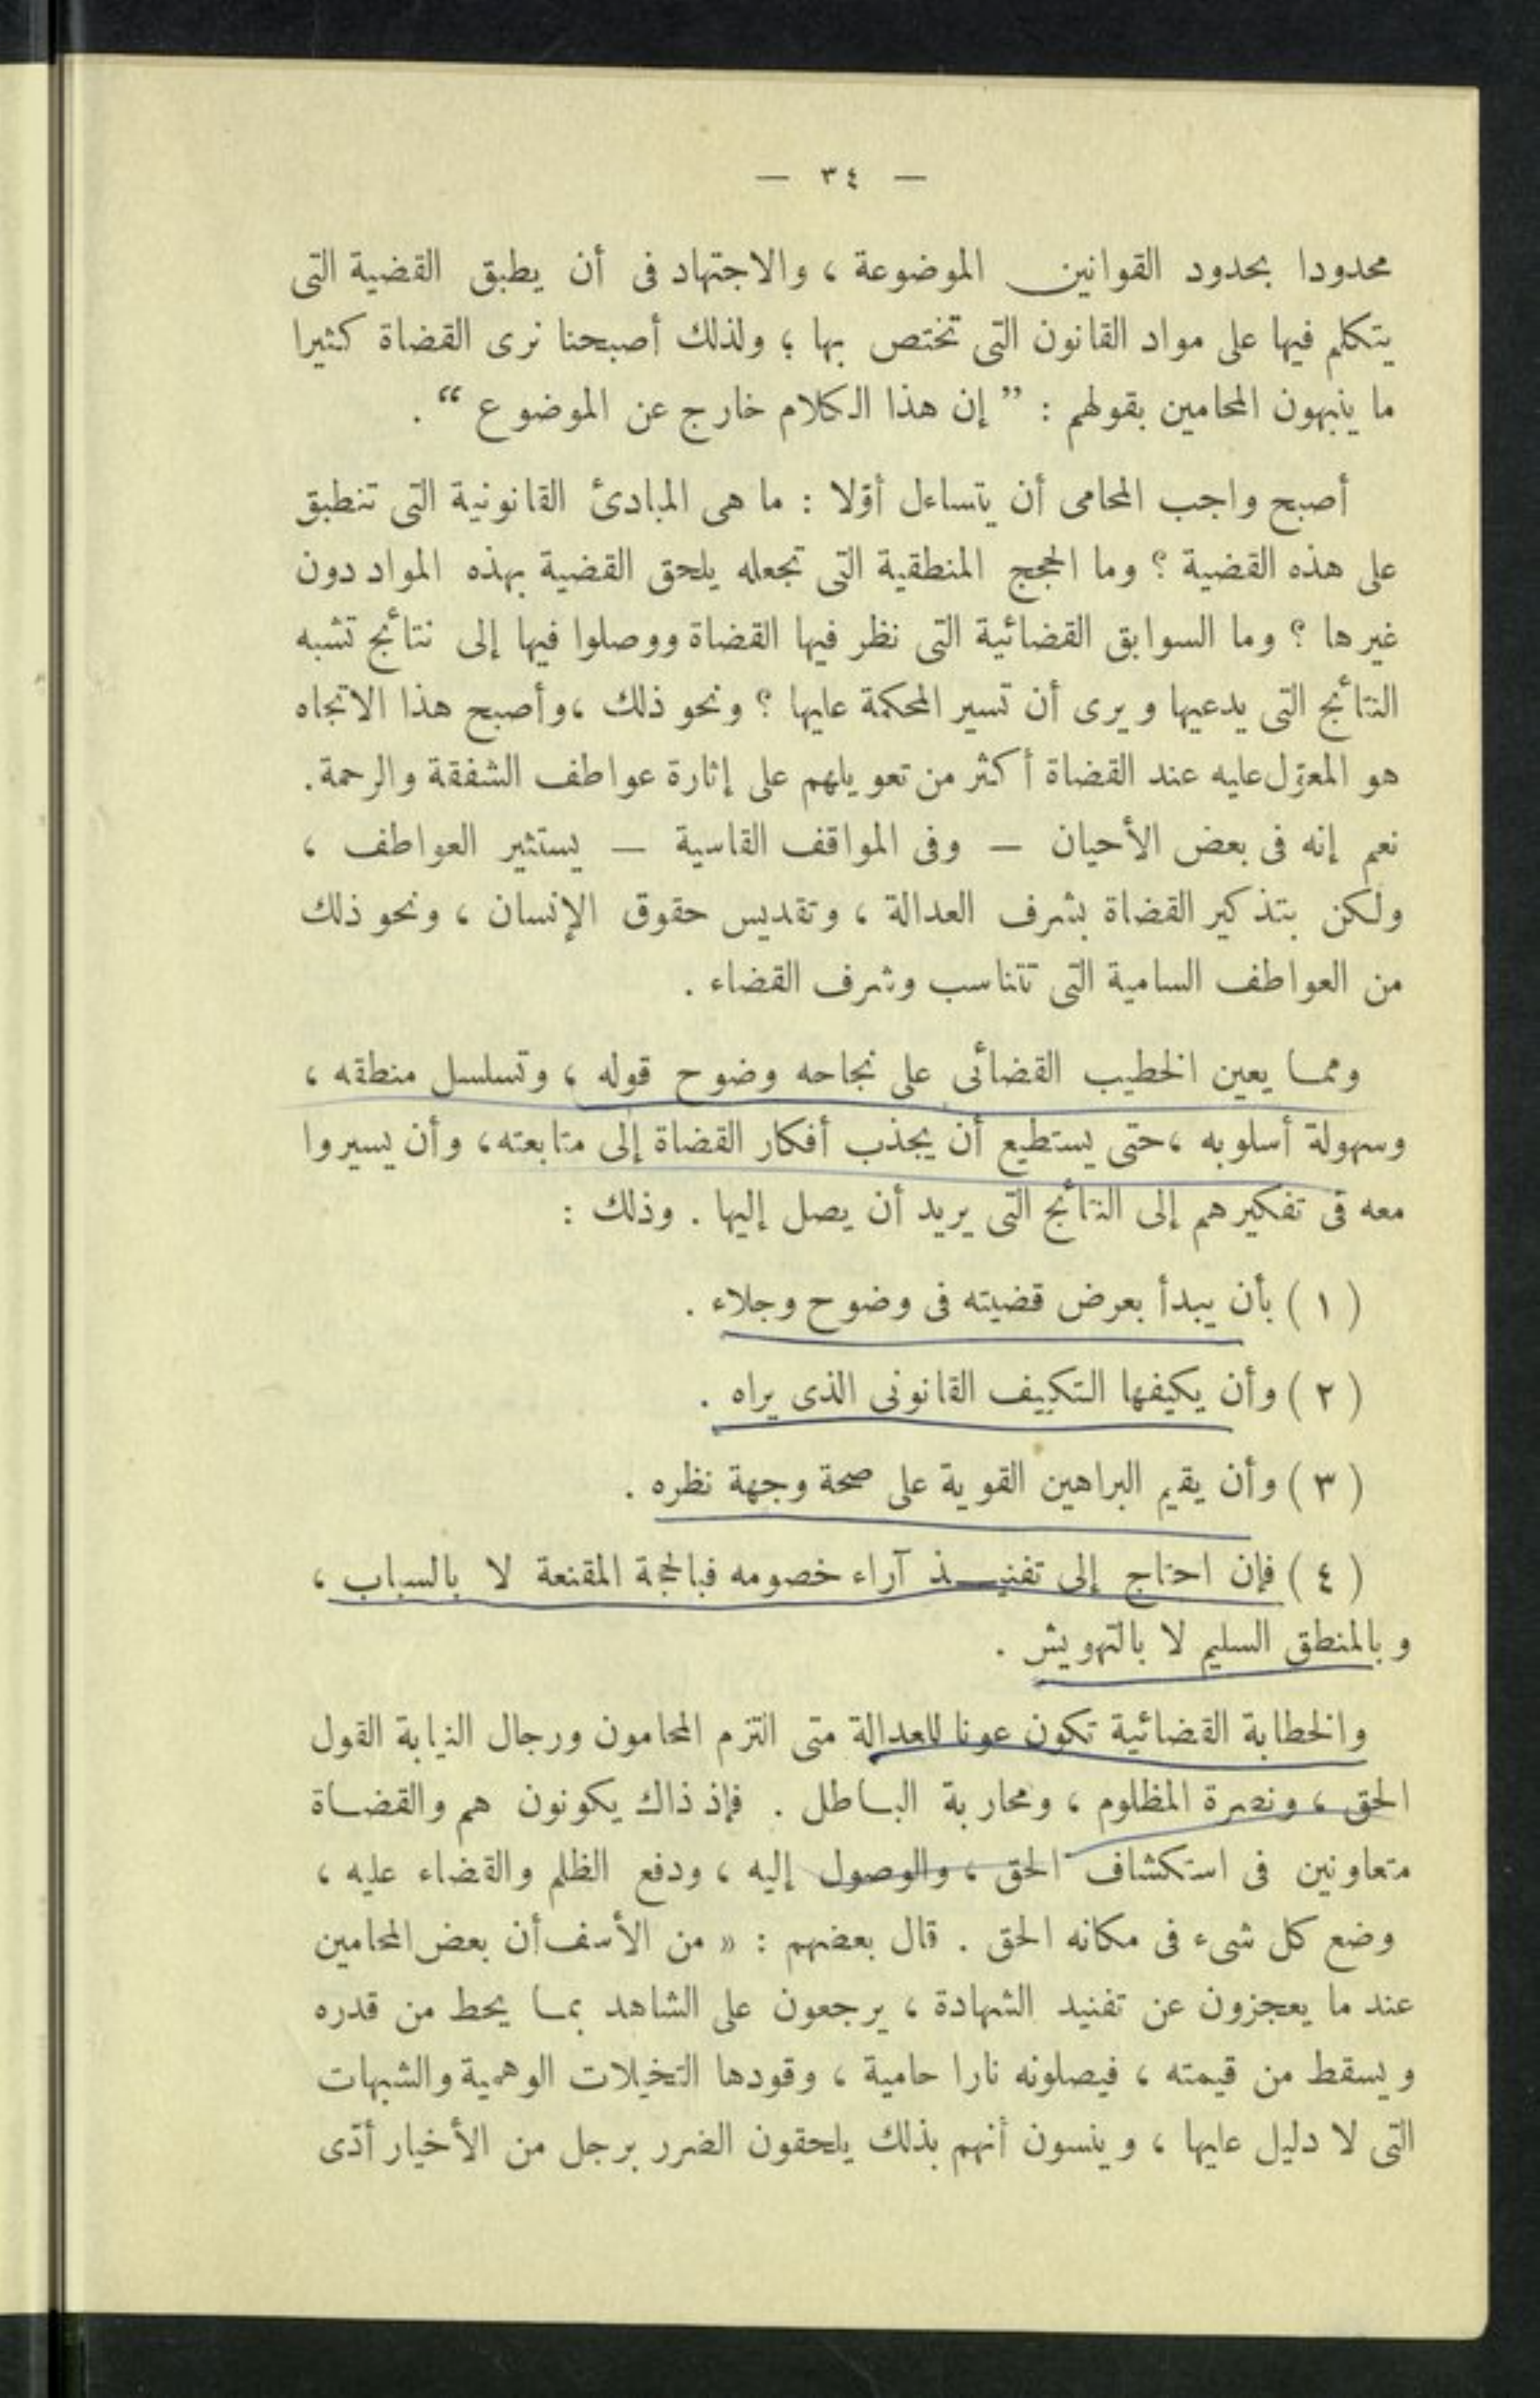 — ٣٤ —
محدودا بحدود القوانين الموضوعة ، والاجتهاد فى أن يطبق القضية التى
يتكلم فيها على مواد القانون التى تختص بها ؛ ولذلك أصبحنا نرى القضاة كثيرا
ما ينبهون المحامين بقولهم : ” إن هذا الكلام خارج عن الموضوع “ .
أصبح واجب المحامى أن يتساءل أوّلا : ما هى المبادئ القانونية التى تنطبق
على هذه القضية ؟ وما الحجج المنطقية التى تجعله يلحق القضية بهذه المواد دون
غيرها ؟ وما السوابق القضائية التى نظر فيها القضاة ووصلوا فيها إلى نتائج تشبه
النتائج التى يدعيها ويرى أن تسير المحكمة عليها ؟ ونحو ذلك ، وأصبح هذا الاتجاه
هو المعوّل عليه عند القضاة أكثر من تعويلهم على إثارة عواطف الشفقة والرحمة .
نعم إنه فى بعض الأحيان — وفى المواقف القاسية — يستثير العواطف ،
ولكن بتذكير القضاة بشرف العدالة ، وتقديس حقوق الإنسان ، ونحو ذلك
من العواطف السامية التى تتناسب وشرف القضاء .
ومما يعين الخطيب القضائى على نجاحه وضوح قوله ، وتسلسل منطقه ،
وسهولة أسلوبه ، حتى يستطيع أن يجذب أفكار القضاة إلى متابعته ، وأن يسيروا
معه فى تفكيرهم إلى النتائج التى يريد أن يصل إليها . وذلك :
( ١ ) بأن يبدأ بعرض قضيته فى وضوح وجلاء .
( ٢ ) وأن يكيفها التكييف القانونى الذى يراه .
( ٣ ) وأن يقيم البراهين القوية على صحة وجهة نظره .
( ٤ ) فإن احتاج إلى تفنيـــذ آراء خصومه فبالحجة المقنعة لا بالسباب ،
وبالمنطق السليم لا بالتهويش .
والخطابة القضائية تكون عونا للعدالة متى التزم المحامون ورجال النيابة القول
الحق ، ونصرة المظلوم ، ومحاربة الباطل . فإذ ذاك يكونون هم والقضاة
متعاونين فى استكشاف الحق ، والوصول إليه ، ودفع الظلم والقضاء عليه ،
وضع كل شىء فى مكانه الحق . قال بعضهم : « من الأسف أن بعض المحامين
عند ما يعجزون عن تفنيد الشهادة ، يرجعون على الشاهد بما يحط من قدره
ويسقط من قيمته ، فيصلونه نارا حامية ، وقودها التخيلات الوهمية والشبهات
التى لا دليل عليها ، وينسون أنهم بذلك يلحقون الضرر برجل من الأخيار أدّى